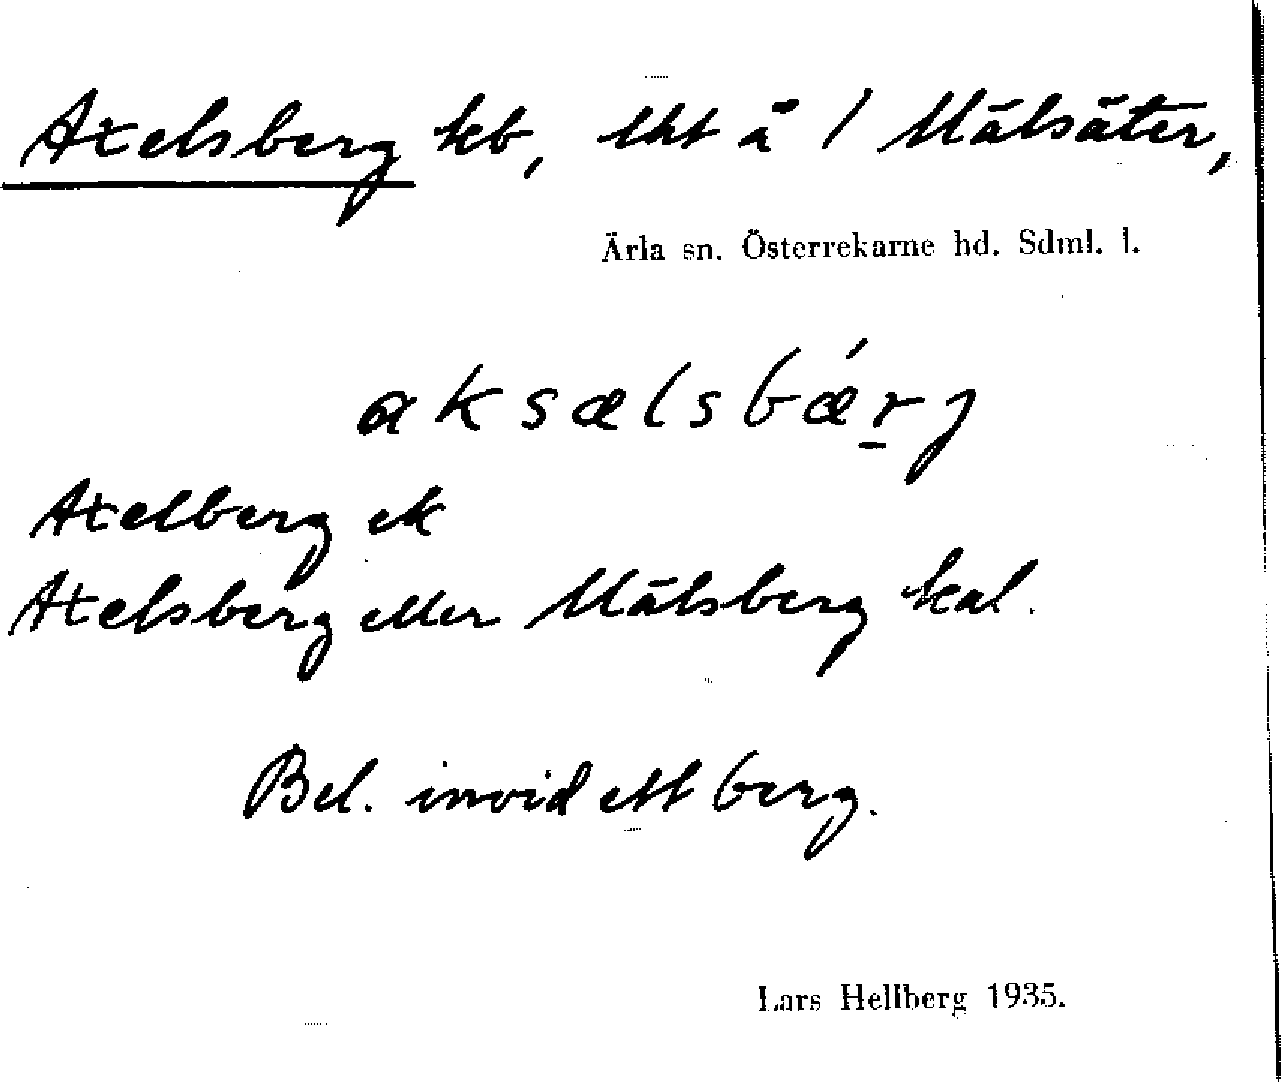 Axelsberg hb, lht å 1 Mälsäter,
Ärla sn. Österrekarne hd. Sdml. l.
aksælsbǽrj
Axelberg ek
Axelsberg eller Mälsberg kal.
Bel. invid ett berg.
Lars Hellberg 1935.